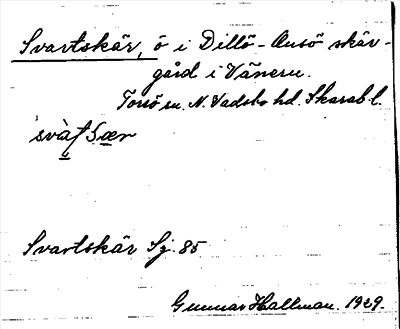 Svartskär, ö i Dillö-Onsö skär-
gård i Vänern.
Torsö sn. N. Vadsbo hd. Skarab.l.
Svartskär Sj. 85
Gunnar Hallman. 1929.